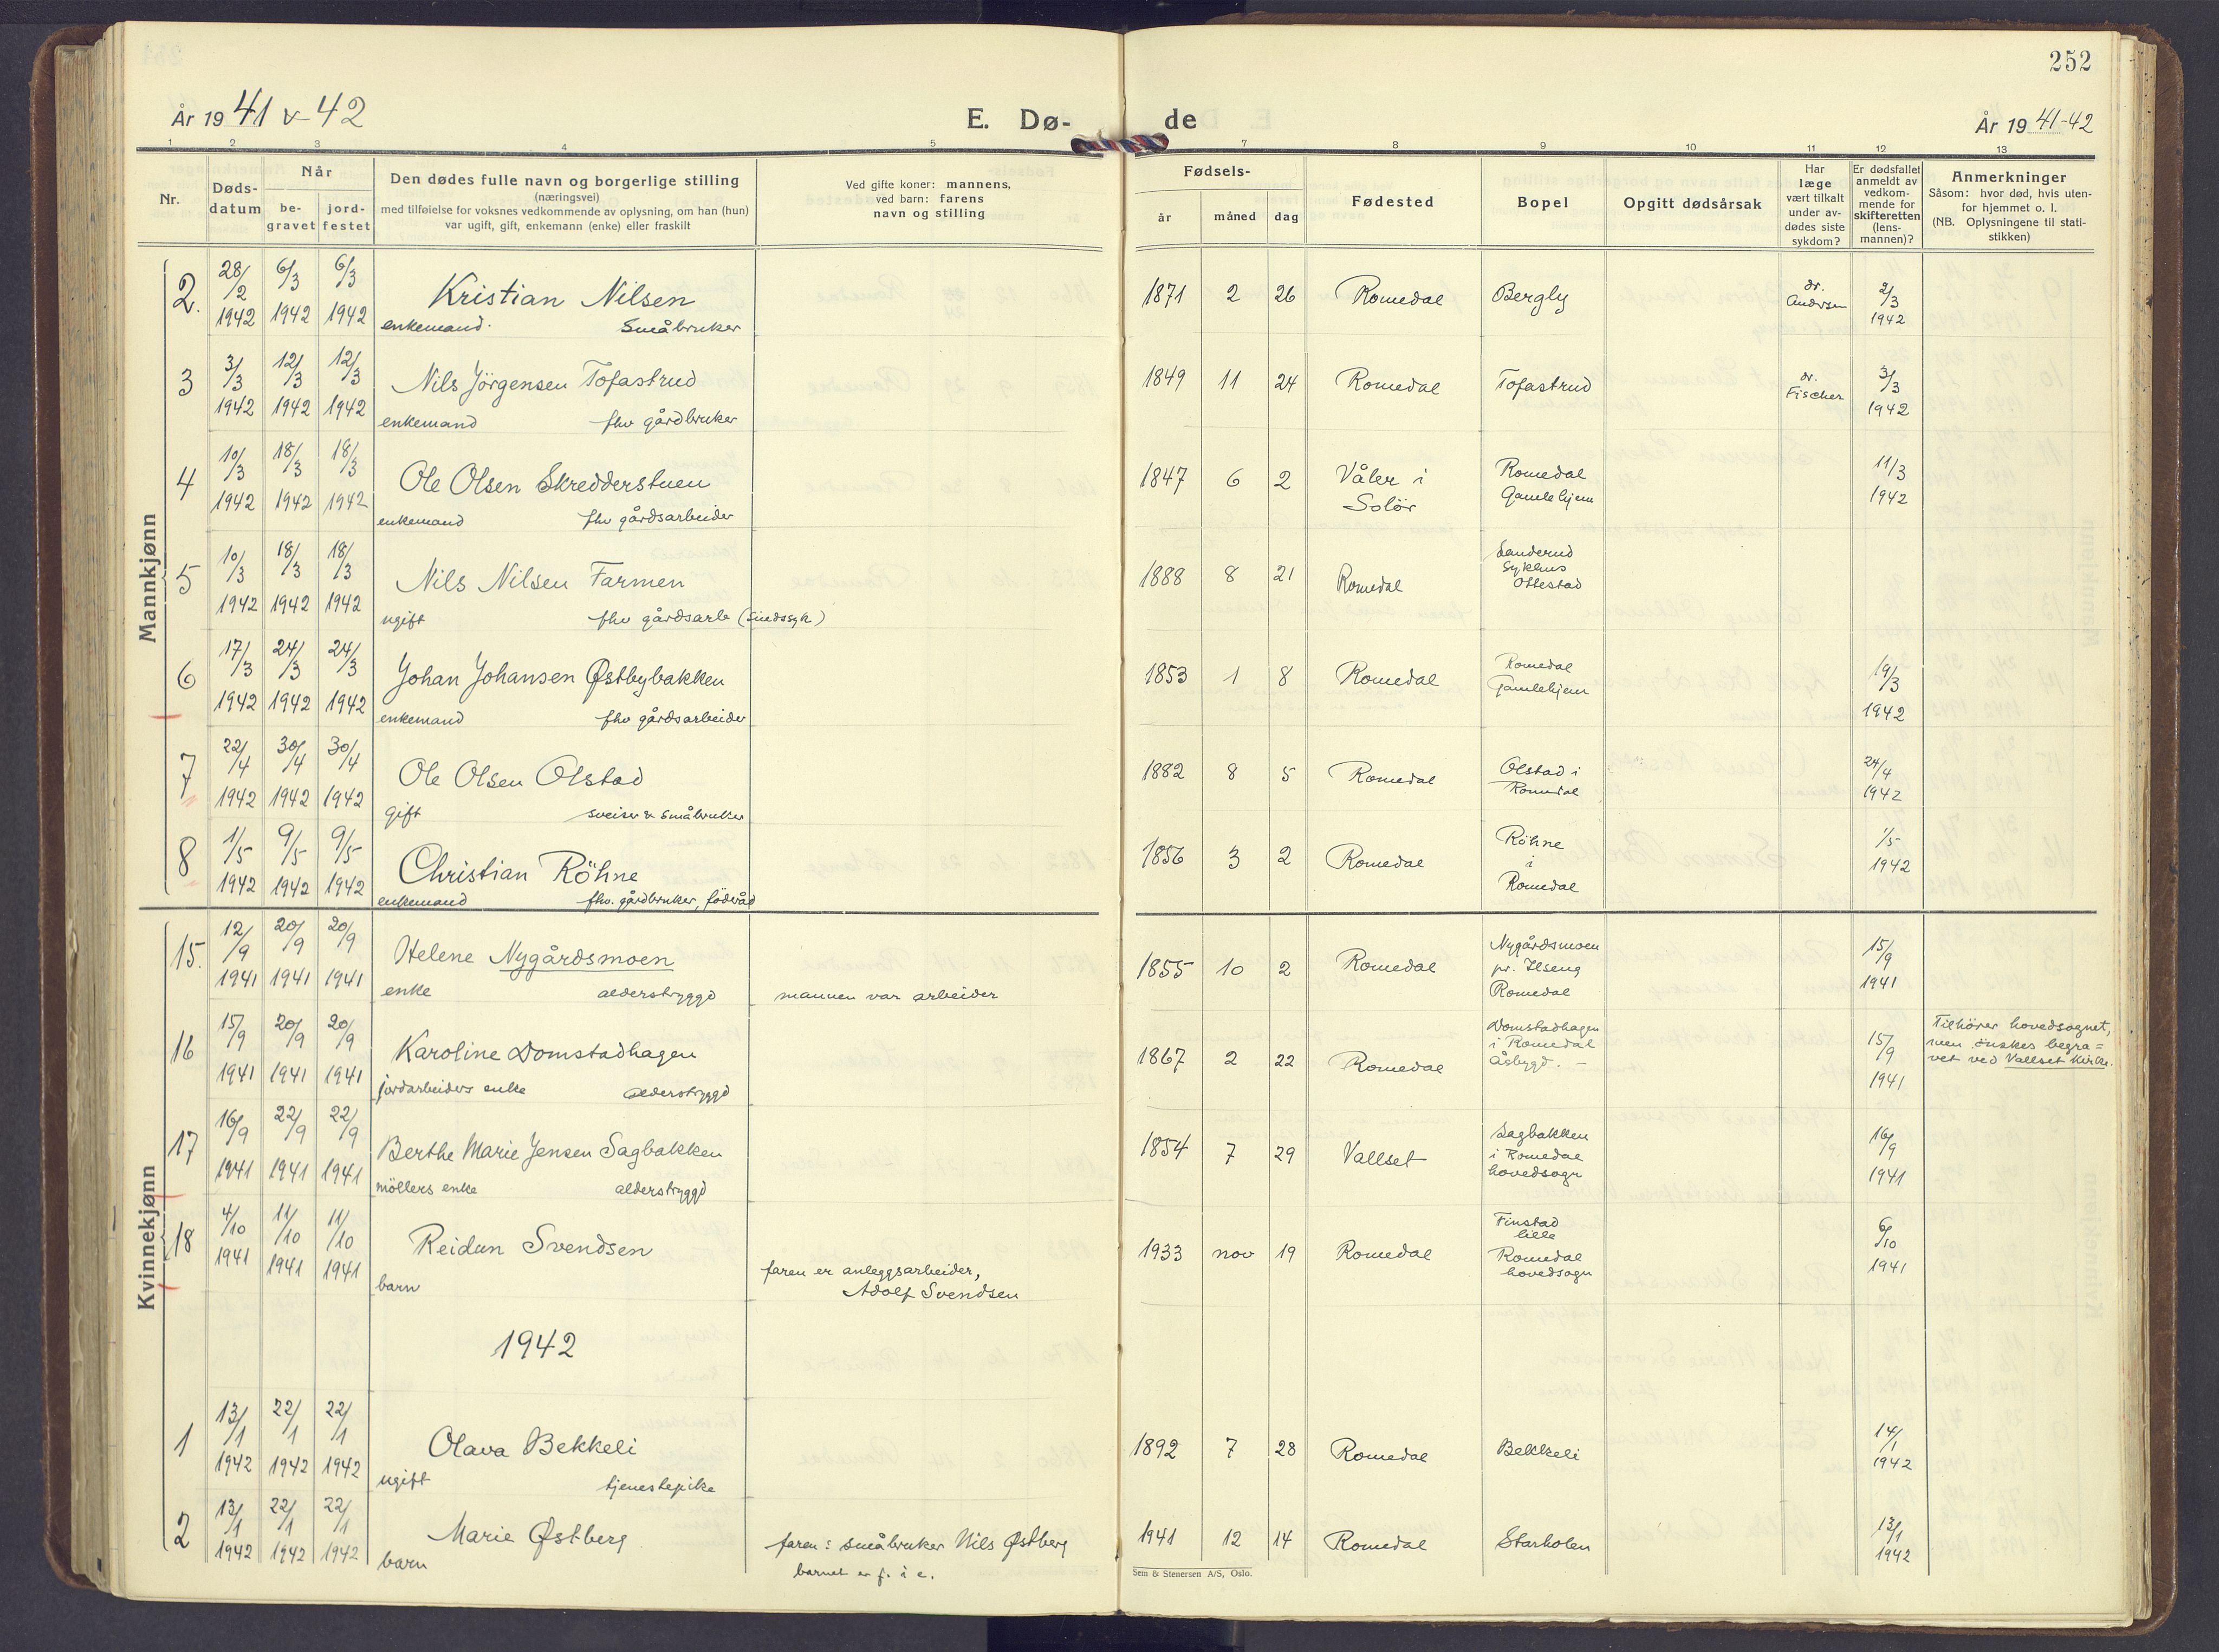 252
År 1941 & 42
E. Dø-
de
År 1941-42
1 2 3 4 5 7 8 9 10 11 12 13
Nr.
Døds-
datum
Når
be-
gravet
jord-
festet
Den dødes fulle navn og borgerlige stilling
(næringsvei)
med tilføielse for voksnes vedkommende av oplysning, om han (hun)
var ugift, gift, enkemann (enke) eller fraskilt
Ved gifte koner: mannens,
ved barn: farens
navn og stilling
Fødsels-
år måned dag
Fødested
Bopel
Opgitt dødsårsak
Har
læge
vært tilkalt
under av-
dødes siste
sykdom?
Er dødsfallet
anmeldt av
vedkom-
mende for
skifteretten
(lens-
mannen)?
Anmerkninger
Såsom: hvor død, hvis uten-
for hjemmet o. l.
(NB. Oplysningene til stati-
stikken)
Mannkjønn
2. 28/2 1942 6/3 1942 6/3 1942 Kristian Nilsen 1871 2 26 Romedal Bergly dr. Andersen 2/3 1942
enkemand. Småbruker
3 3/3 1942 12/3 1942 12/3 1942 Nils Jörgensen Tofastrud 1849 11 24 Romedal Tofastrud dr. Fischer 3/3 1942
enkemand fhv gårdbruker
4 10/3 1942 18/3 1942 18/3 1942 Ole Olsen Skredderstuen 1847 6 2 Våler i Solör Romedal Gamlehjem 11/3 1942
enkemand fhv gårdsarbeider
5 10/3 1942 18/3 1942 18/3 1942 Nils Nilsen Farmen 1888 8 21 Romedal Sanderud Sykehus Ottestad
ugift fhv gårdsarb (sindssyk)
6 17/3 1942 24/3 1942 24/3 1942 Johan Johansen Østbybakken 1853 1 8 Romedal Romedal Gamlehjem 19/3 1942
enkemand fhv gårdsarbeider
7 22/4 1942 30/4 1942 30/4 1942 Ole Olsen Olstad 1882 8 5 Romedal Olstad i Romedal 24/4 1942
gift sveiser & småbruker
8 1/5 1942 9/5 1942 9/5 1942 Christian Röhne 1856 3 2 Romedal Röhne i Romedal 1/5 1942
enkemand fhv. gårdbruker, föderåd
Kvinnekjønn
15. 12/9 1941 20/9 1941 20/9 1941 Helene Nygårdsmoen 1855 10 2 Romedal Nygårdsmoen pr. Ilseng Romedal 15/9 1941
enke alderstryggd mannen var arbeider
16 15/9 1941 20/9 1941 20/9 1941 Karoline Domstadhagen 1867 2 22 Romedal Domstadhagen i Romedal Åsbygd. - 15/9 1941 Tilhörer hovedsognet, men önskes begra= vet ved Vallset Kirke.
jordarbeiders enke alderstryggd
17 16/9 1941 22/9 1941 22/9 1941 Berthe Marie Jensen Sagbakken 1854 7 29 Vallset Sagbakken i Romedal hovedsogn 16/9 1941
möllers enke alderstryggd
18 4/10 1941 11/10 1941 11/10 1941 Reidun Svendsen 1933 nov 19 Romedal Finstad lille Romedal hovedsogn 6/10 1941
barn faren er anleggsarbeider,
Adolf Svendsen
1942
1 13/1 1942 22/1 1942 22/1 1942 Olava Bekkeli 1892 7 28 Romedal Bekkeli 14/1 1942
ugift tjenestepike
2 13/1 1942 22/1 1942 22/1 1942 Marie Østberg faren: småbruker Nils Østberg 1941 12 14 Romedal Starholen 13/1 1942
barn barnet er f. i e.
Sem & Stenersen A/S, Oslo.